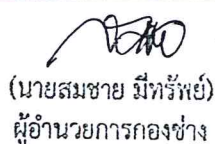 (นายสมชาย มีทรัพย์)
ผู้อำนวยการกองช่าง